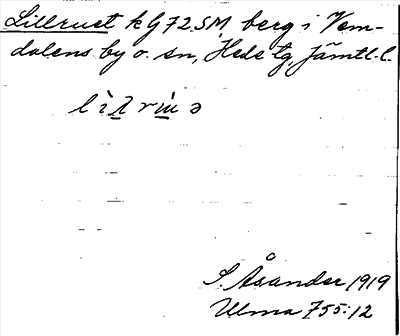 Lillruet k G72SM, berg i Vem-
dalens by o. sn, Hede tg, Jämtl. l.
S. Åsander 1919
Ulma 755:12